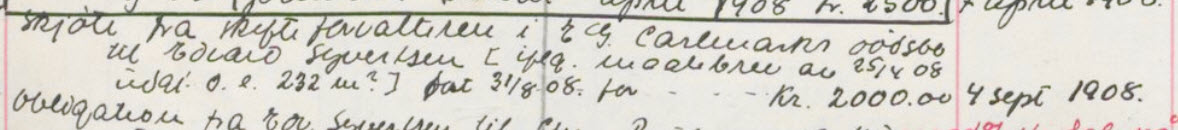 april 1908 kr. 2500. april
Skjöte fra skifteforvalteren i E G. Carlmarks dödsbo
til Edvard Syvertsen [ iflg. maalebrev av 25/4 08
utgl. o. e. 232 m² ] dat 31/8 08. for - - - Kr. 2000.00 4 sept 1908.
Obligation fra Edv. Syvertsen til